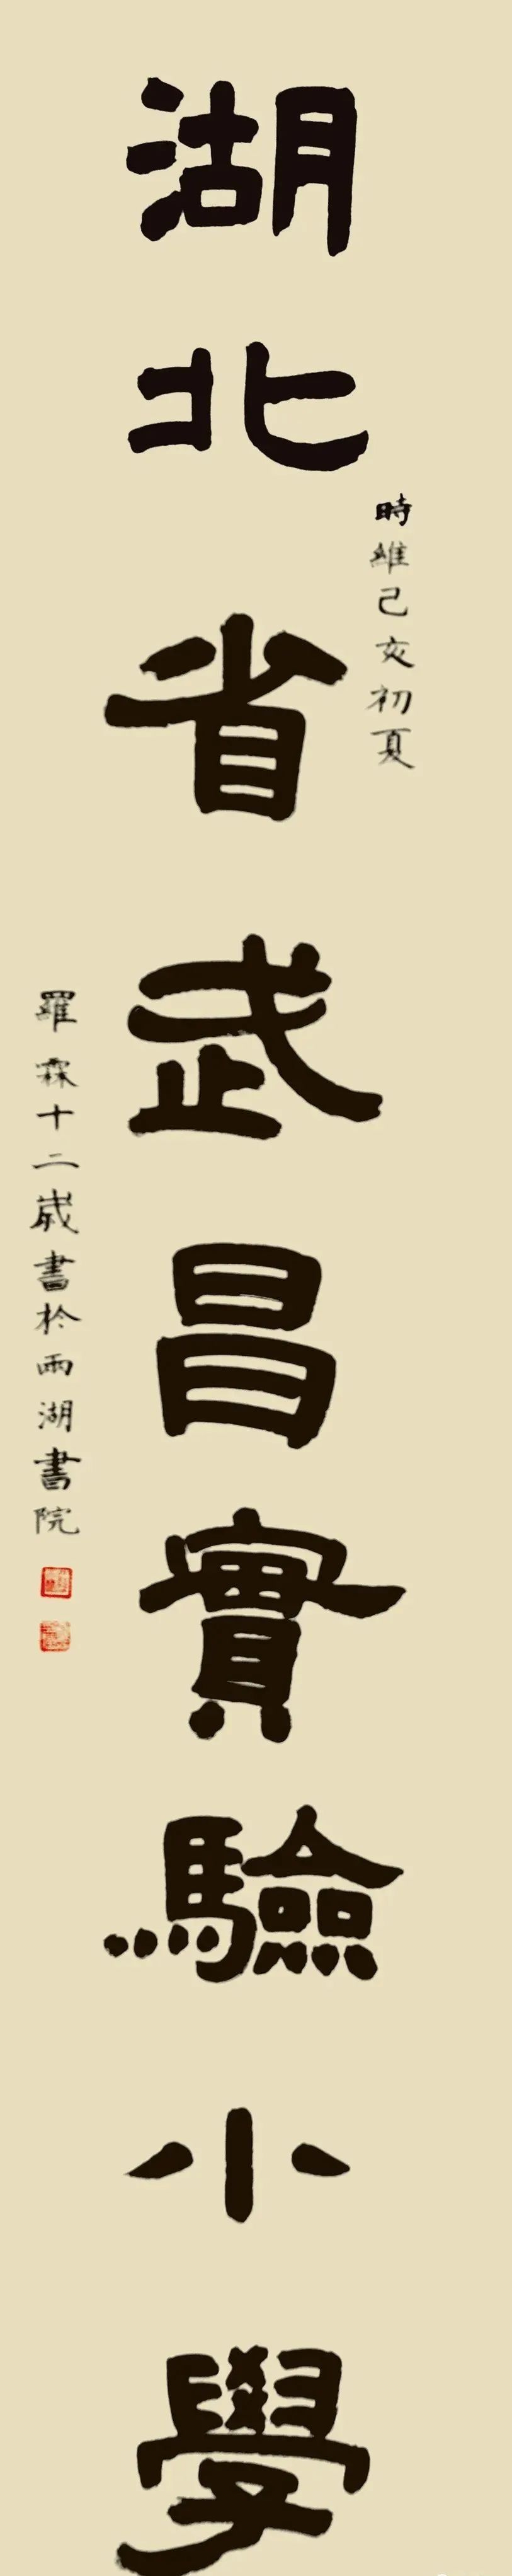 時維己亥初夏
湖北省武昌實驗小學
羅霖十二歲書於兩湖書院